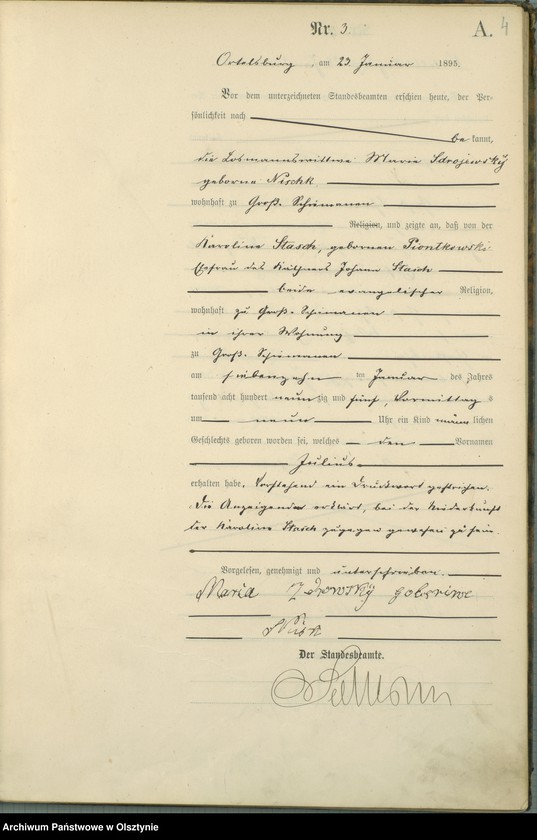 Nr. 3.
A. 4
Ortelsburg, am 23. Januar 1895.
Vor dem unterzeichneten Standesbeamten erschien heute, der Per-
sönlichkeit nach
be kannt,
die Losmannswittwe Marie Sdrojewsky
geborne Nischk
wohnhaft zu Groß. Schiemanen
Religion, und zeigte an, daß von der
Karoline Stasch, gebornen Piontkowski
Ehefrau des Käthners Johann Stasch
beide evangelischer Religion,
wohnhaft zu Groß. Schimanen
in ihrer Wohnung
zu Groß. Schimanen
am siebenzehn ten Januar des Jahres
tausend acht hundert neun zig und fünf, Vormittag s
um neun Uhr ein Kind männ lichen
Geschlechts geboren worden sei, welches den Vornamen
Julius
erhalten habe. Vorstehend ein Druckwort gestrichen.
Die Anzeigende erklärt, bei der Niederkunft
der Karoline Stasch zugegen gewesen zu sein.
Vorgelesen, genehmigt und unterschrieben.
Maria
Der Standesbeamte.
Archiwum Państwowe w Olsztynie